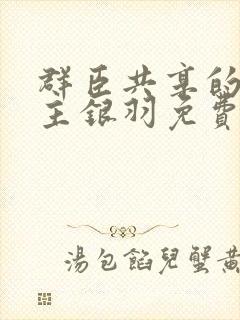 群臣共享的
主銀羽免費
湯包餡兒蟹黃